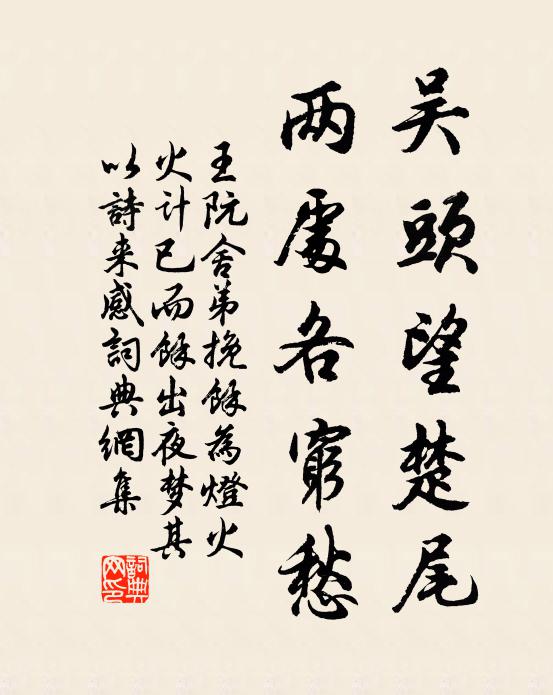 吴頭望楚尾
两處各窮愁
王阮舍弟挽餘為燈火
火计已而餘出夜梦其
以詩来感詞典網集
詞典網印